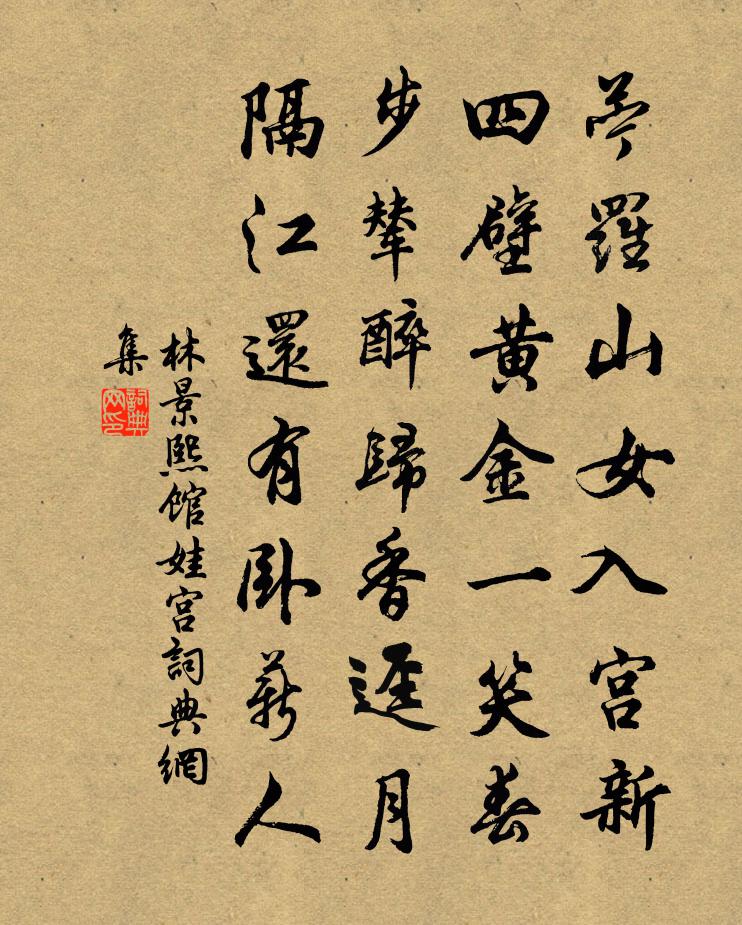 苧羅山女入宮新
四壁黃金一笑春
步輦醉歸香逕月
隔江還有臥薪人
林景熙館娃宮詞典網
集
詞典网印